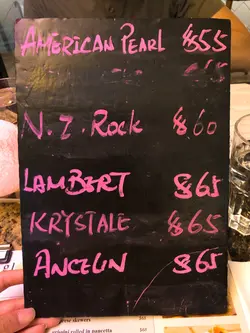 AMERICAN PEARL $55
N.Z. ROCK $60
LAMBERT $65
KRYSTALE $65
ANCELIN $65
cheese skewers
rolled in pancetta